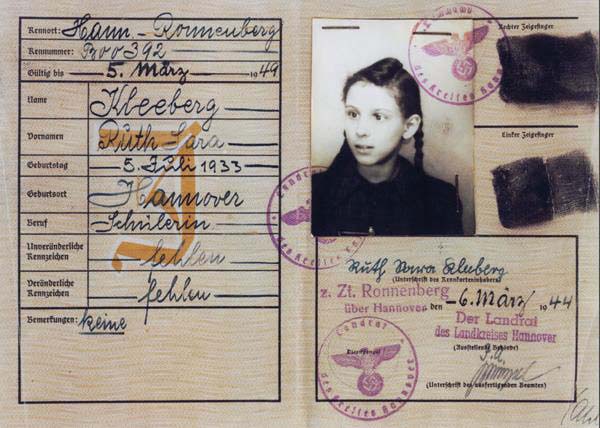 Kennort: Hann.-Ronnenberg
Kennummer: B00392
Gültig bis 5. März 1949
Name Kleeberg
Vornamen Ruth Sara
Geburtstag 5. Juli 1933
Geburtsort Hannover
Beruf Schülerin
Unveränderliche Kennzeichen fehlen
Veränderliche Kennzeichen fehlen
Bemerkungen: keine
J
Rechter Zeigefinger
Linker Zeigefinger
Landrat
des Kreises Hannover
Ruth Sara Kleeberg
(Unterschrift des Kennkarteninhabers)
z. Zt. Ronnenberg
über Hannover den -6. März 1944
Der Landrat
des Landkreises Hannover
(Ausstellende Behörde)
Dienststempel
Landrat
des Kreises Hannover
(Unterschrift des ausfertigenden Beamten)